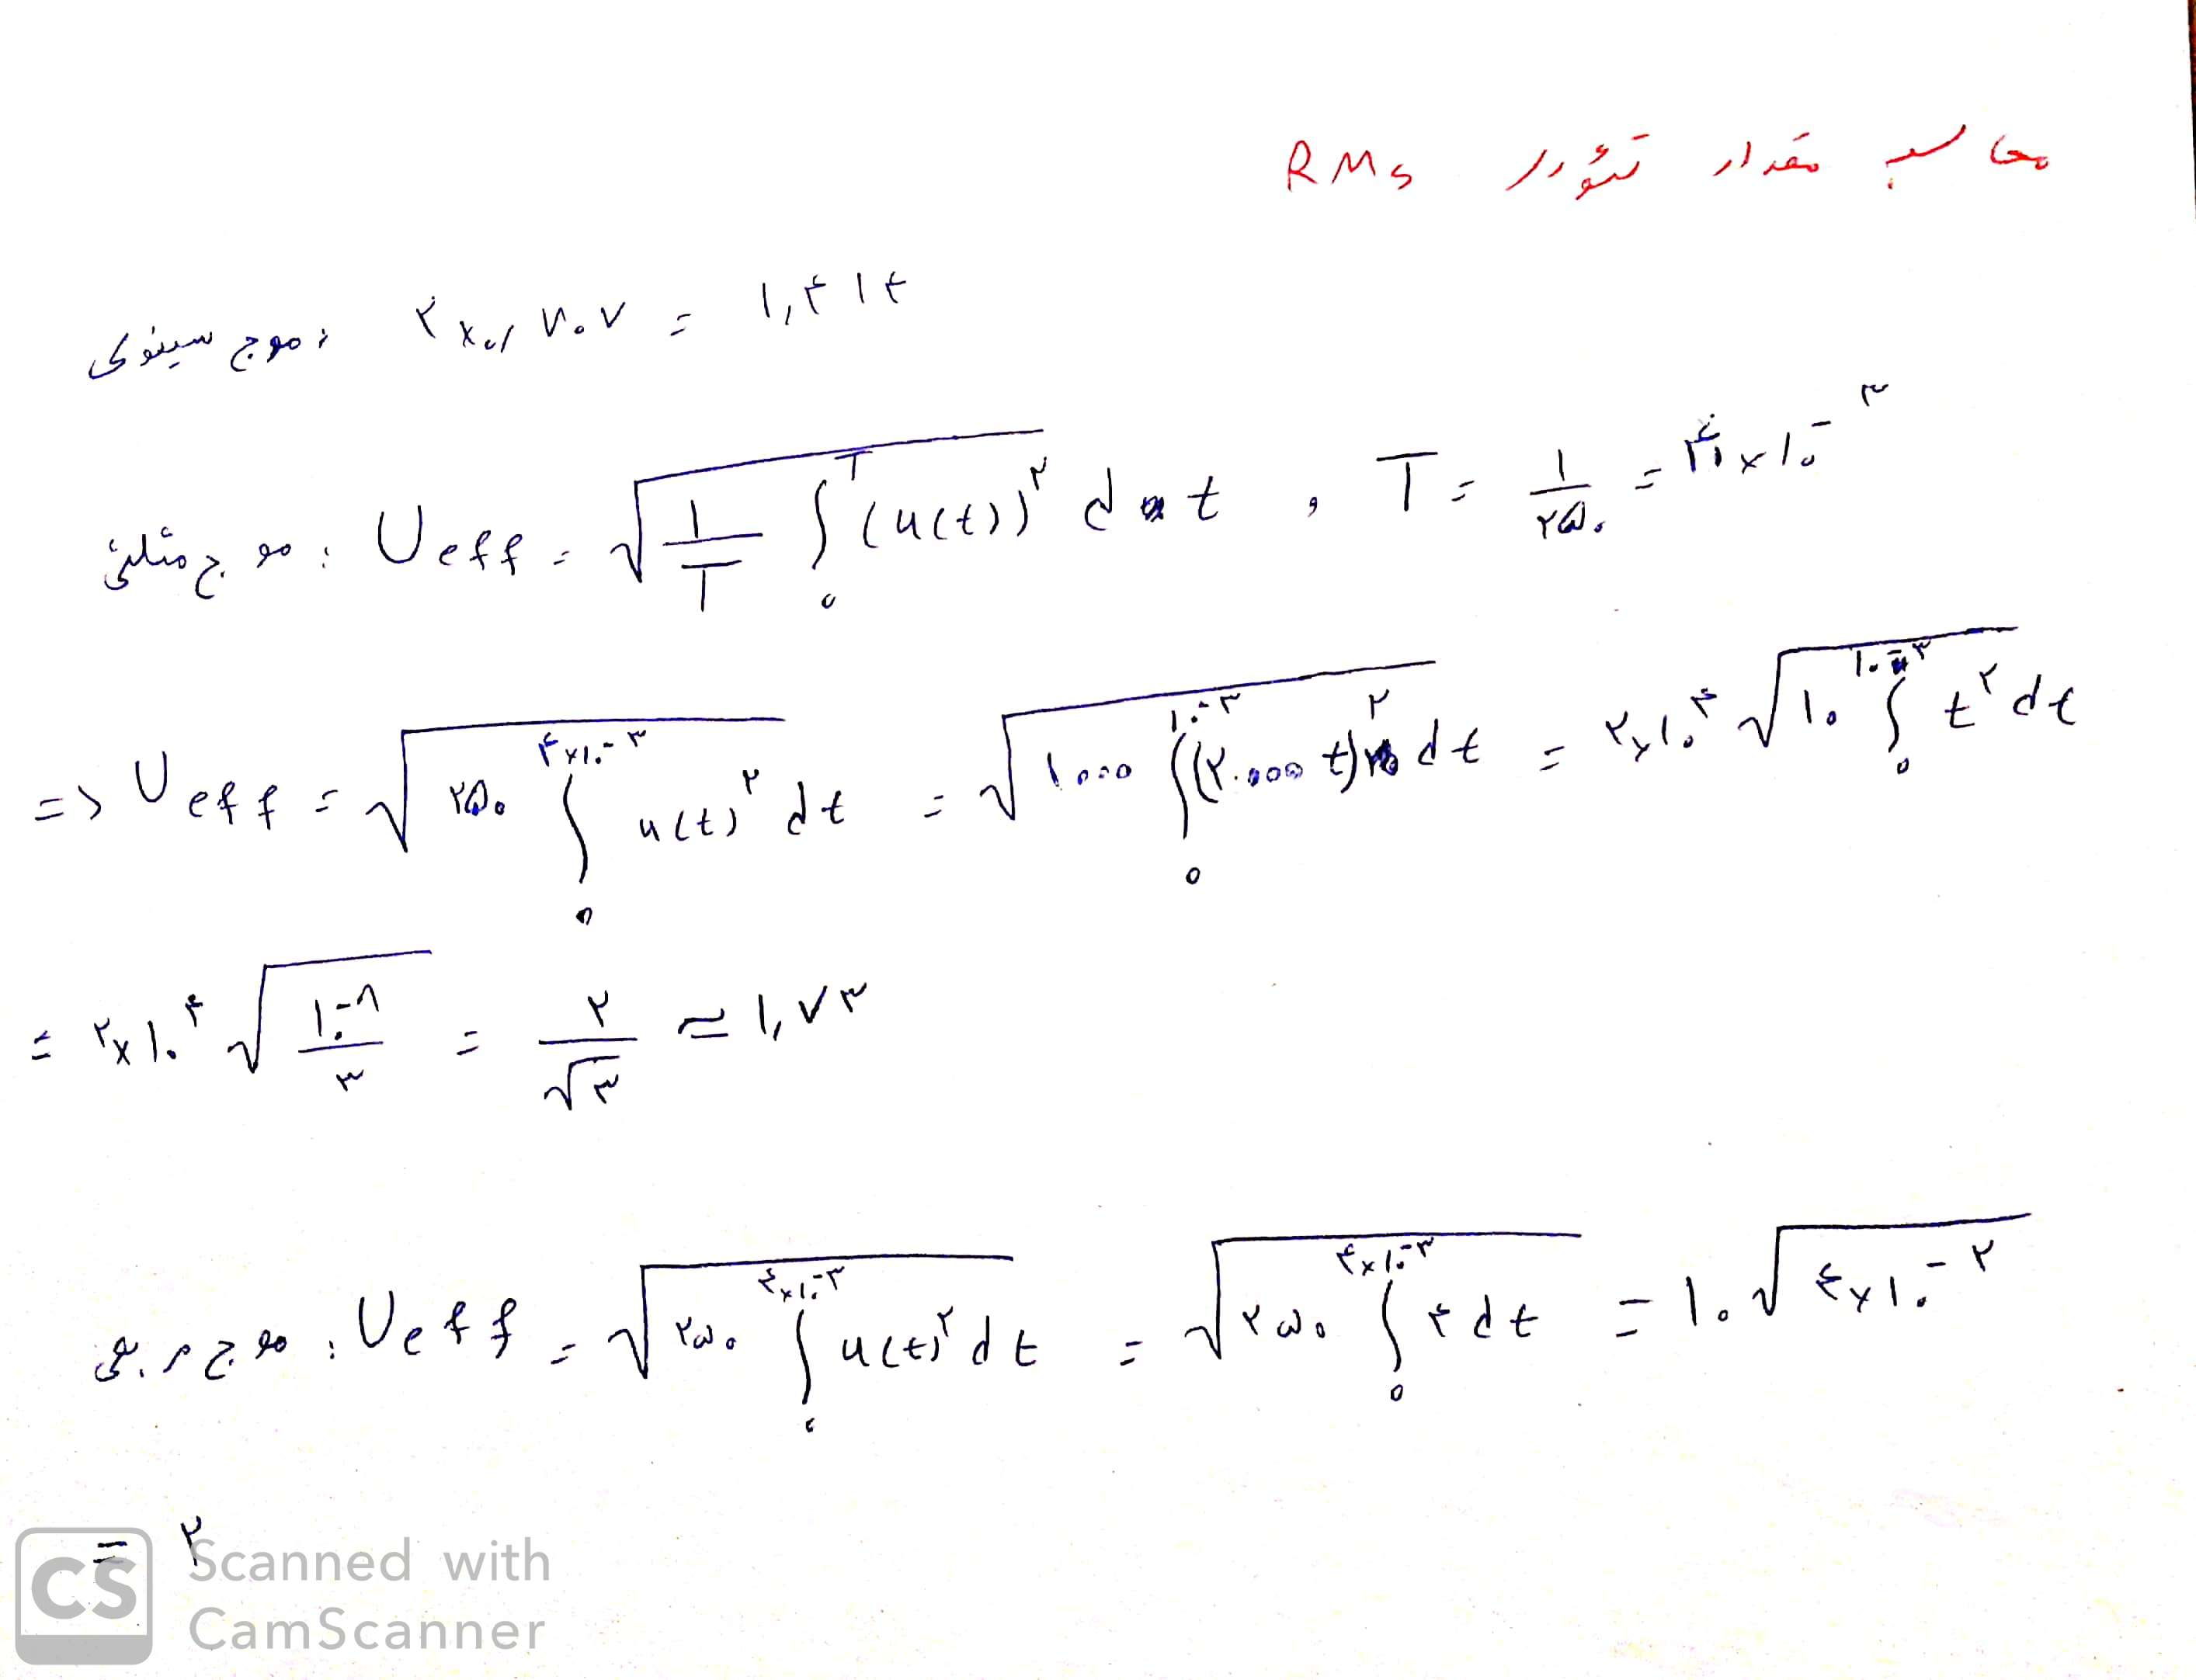 محاسبه مقدار تئوری RMS
موج سینوسی : ۲ × ۰٫۷۰۷ = ۱,۴۱۴
موج مثلثی : Ueff = √(۱/T ∫₀ᵀ (u(t))² dt) , T = ۱/۲۵۰ = ۴×۱۰⁻³
=> Ueff = √(۲۵۰ ∫₀^(۴×۱۰⁻³) u(t)² dt) = √(۱۰۰۰ ∫₀^(۱۰⁻³) (۲۰۰۰ t)² dt) = ۲×۱۰⁴ √(۱۰ ∫₀^(۱۰⁻³) t² dt)
= ۲×۱۰⁴ √(۱۰⁻⁸/۳) = ۲/√۳ ≈ ۱,۷۳
موج مربعی : Ueff = √(۲۵۰ ∫₀^(۴×۱۰⁻³) u(t)² dt) = √(۲۵۰ ∫₀^(۴×۱۰⁻³) ۴ dt) = ۱۰√(۴×۱۰⁻²)
= ۲
CS Scanned with
CamScanner